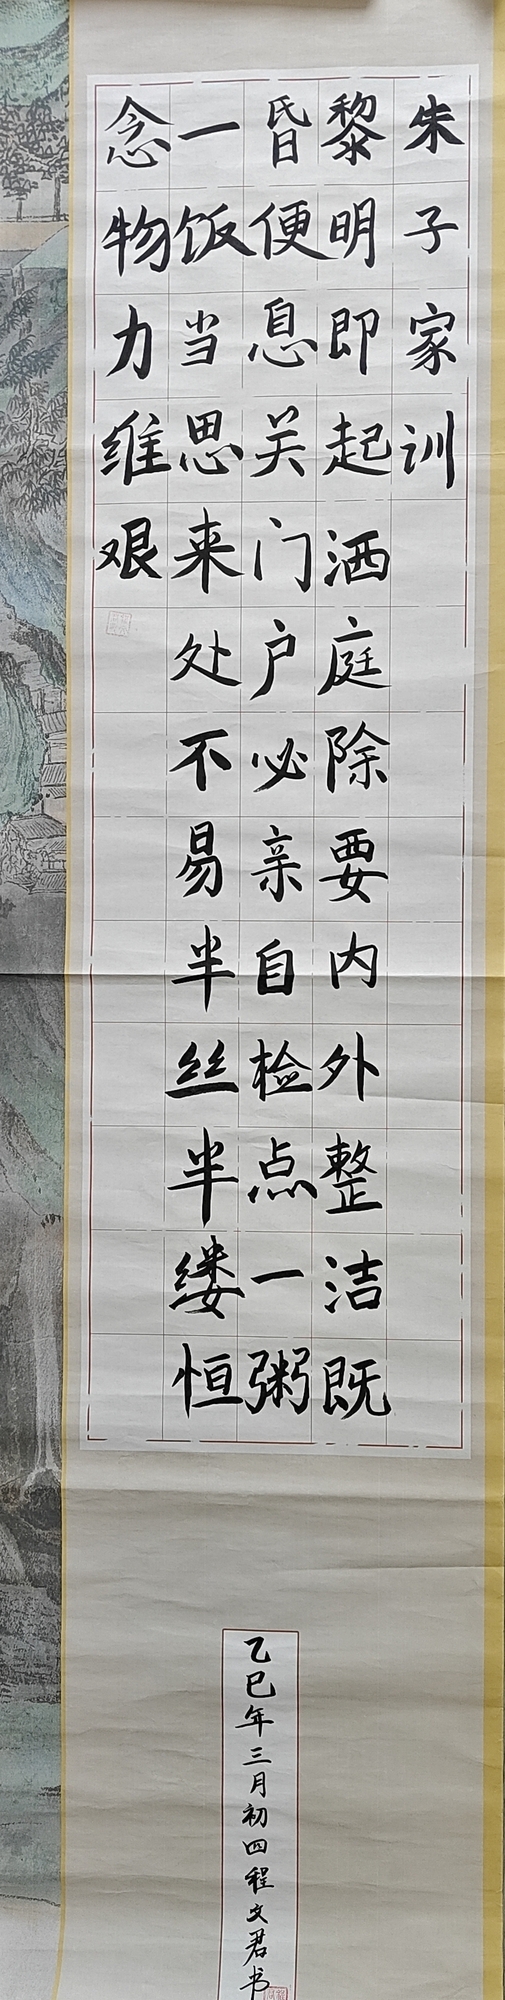 朱子家训
黎明即起洒庭除要内外整洁既
昏便息关门户必亲自检点一粥
一饭当思来处不易半丝半缕恒
念物力维艰
乙巳年三月初四程文君书